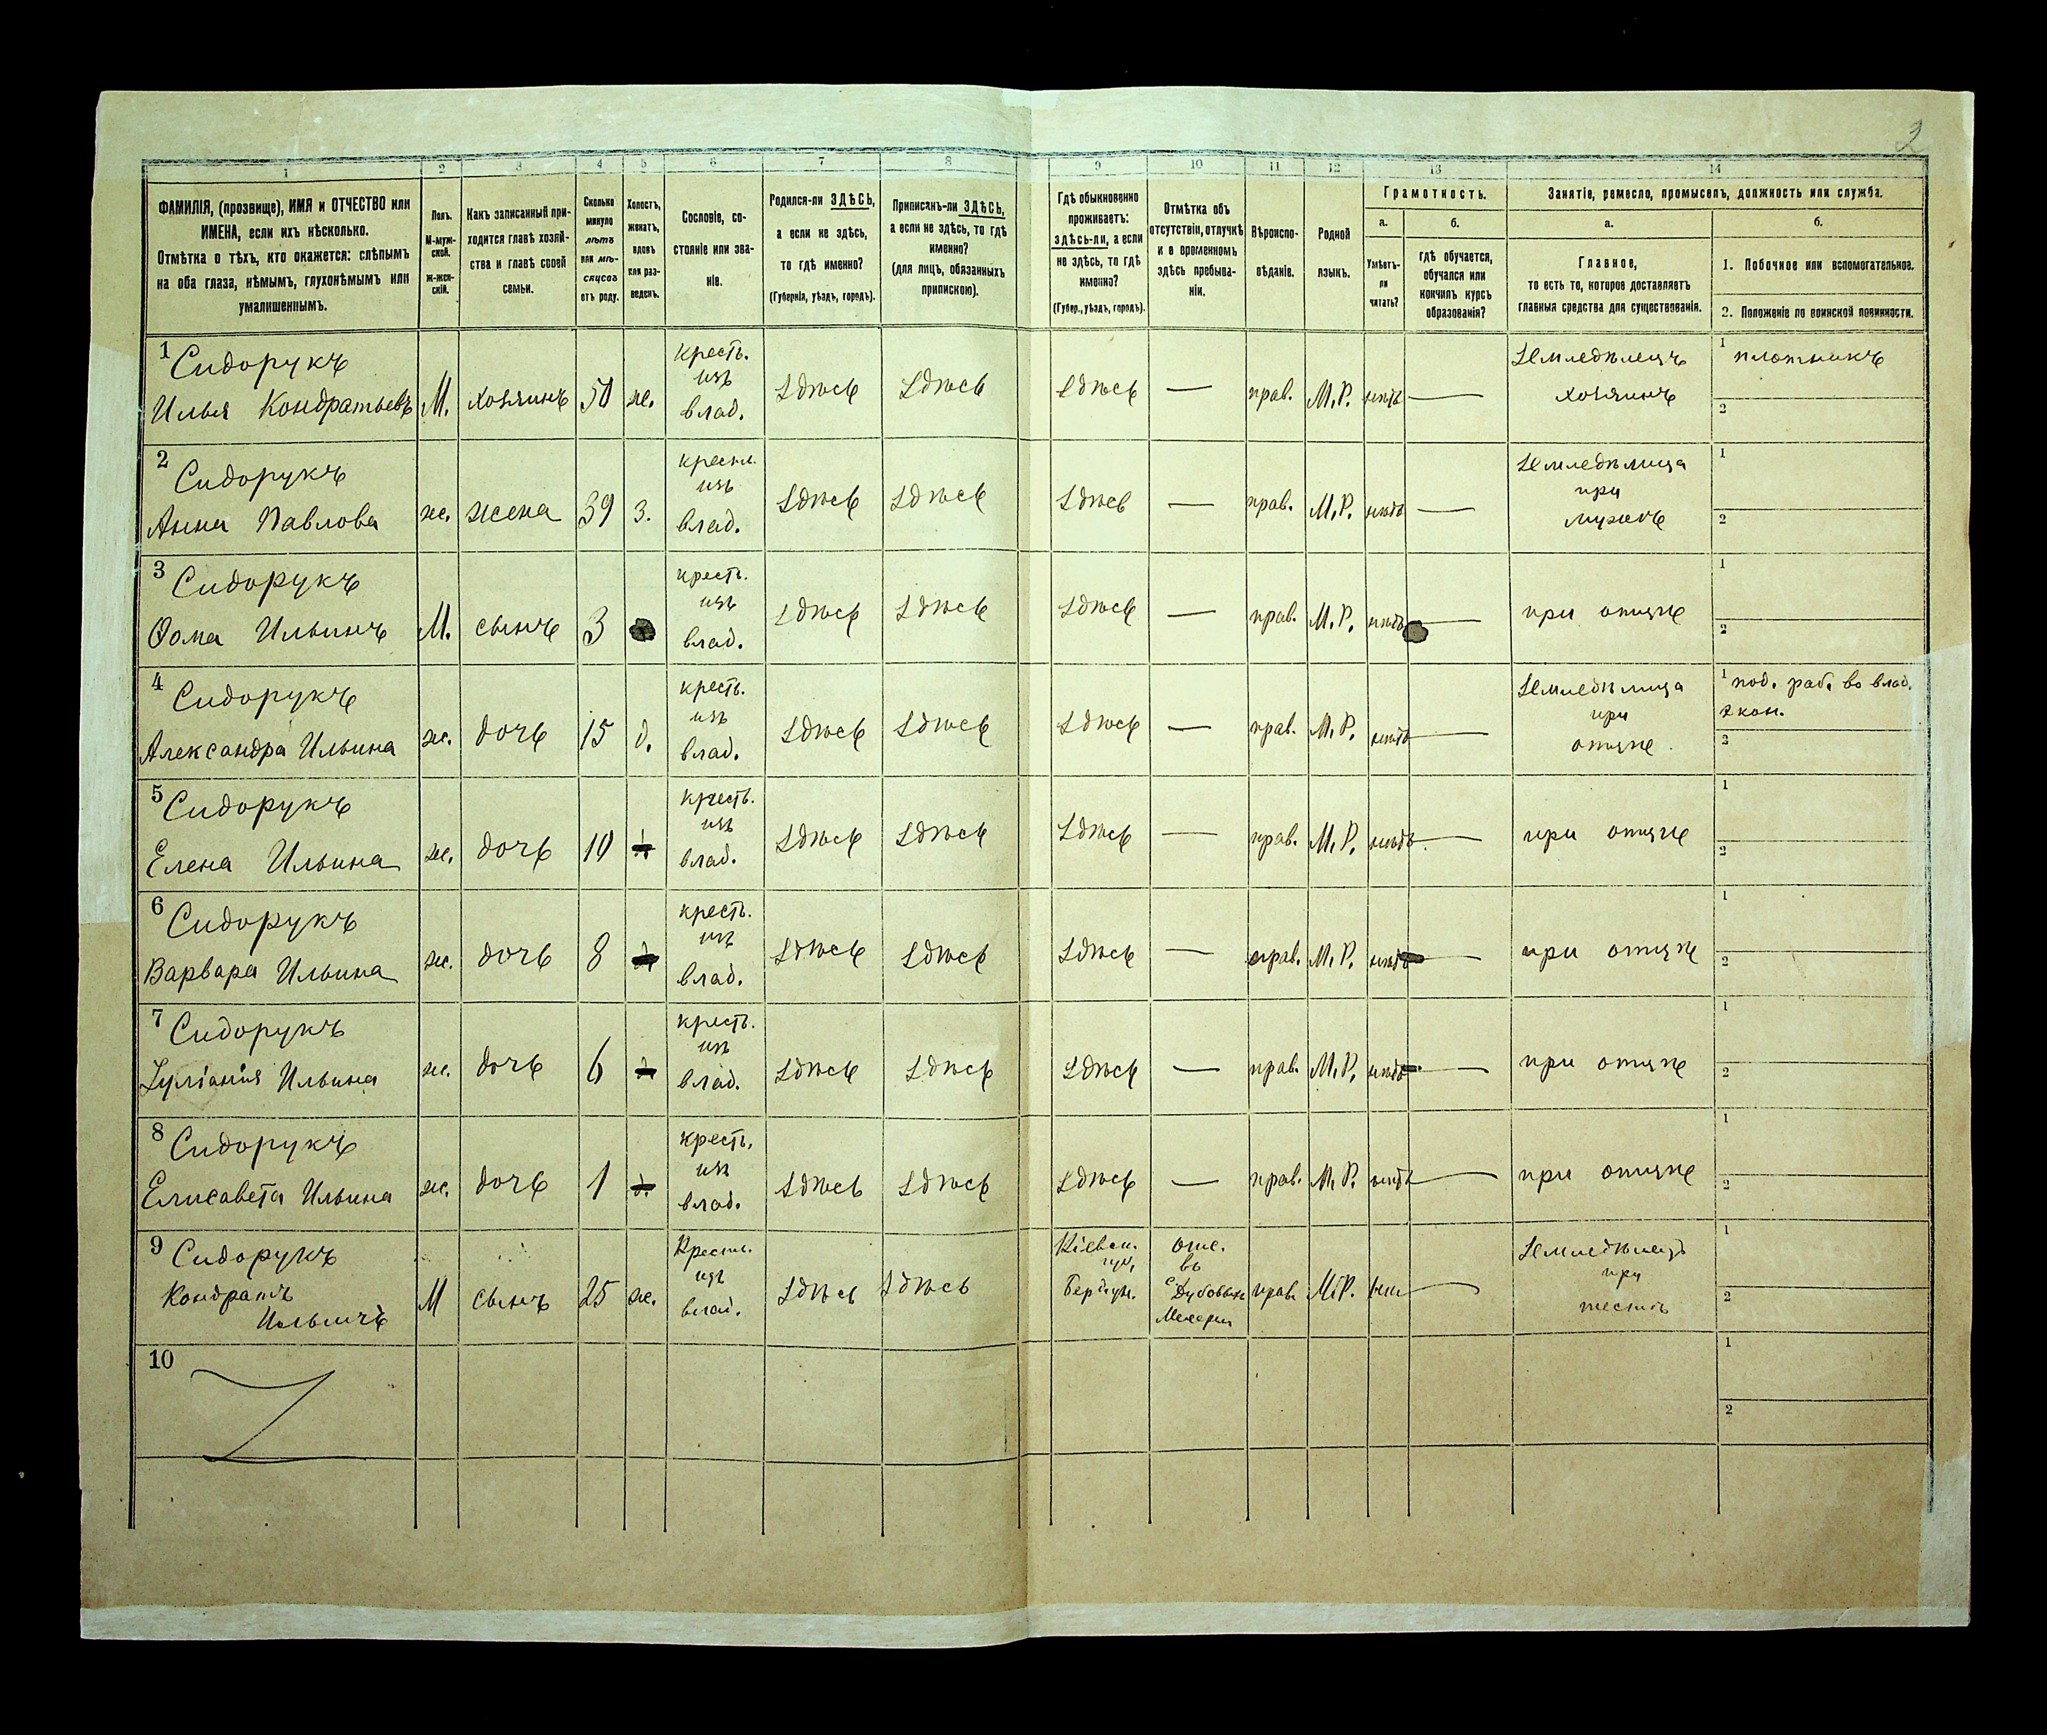 2
1 2 3 4 5 6 7 8 9 10 11 12 13 14
ФАМИЛІЯ, (прозвище), ИМЯ и ОТЧЕСТВО или
ИМЕНА, если ихъ нѣсколько.
Отмѣтка о тѣхъ, кто окажется: слѣпымъ
на оба глаза, нѣмымъ, глухонѣмымъ или
умалишеннымъ.
Полъ.
М-муж-
ской.
ж-жен-
скій.
Какъ записанный при-
ходится главѣ хозяй-
ства и главѣ своей
семьи.
Сколько
минуло
лѣтъ
или мѣ-
сяцевъ
отъ роду.
Холостъ,
женатъ,
вдовъ
или раз-
веденъ.
Сословіе, со-
стояніе или зва-
ніе.
Родился-ли ЗДѢСЬ,
а если не здѣсь,
то гдѣ именно?
(Губернія, уѣздъ, городъ).
Приписанъ-ли ЗДѢСЬ,
а если не здѣсь, то гдѣ
именно?
(для лицъ, обязанныхъ
припискою).
Гдѣ обыкновенно
проживаетъ:
здѣсь-ли, а если
не здѣсь, то гдѣ
именно?
(Губер., уѣздъ, городъ).
Отмѣтка объ
отсутствіи, отлучкѣ
и о временномъ
здѣсь пребыва-
ніи.
Вѣроиспо-
вѣданіе.
Родной
языкъ.
Грамотность.
а.
Умѣетъ-
ли
читать?
б.
гдѣ обучается,
обучался или
кончилъ курсъ
образованія?
Занятіе, ремесло, промыселъ, должность или служба.
а.
Главное,
то есть то, которое доставляетъ
главныя средства для существованія.
б.
1. Побочное или вспомогательное.
2. Положеніе по воинской повинности.
1 Сидорукъ
Илья Кондратьевъ М. хозяинъ 50 ж. крестъ. изъ влад. Здѣсь Здѣсь Здѣсь — прав. М.Р. нѣтъ — Земледѣлецъ хозяинъ 1 плотникъ
2
2 Сидорукъ
Анна Павлова ж. жена 39 з. крестьл. изъ влад. Здѣсь Здѣсь Здѣсь — прав. М.Р. нѣтъ — Земледѣлица при мужѣ 1
2
3 Сидорукъ
Ѳома Ильинъ М. сынъ 3 крестъ. изъ влад. Здѣсь Здѣсь Здѣсь — прав. М.Р. нѣтъ — при отцѣ 1
2
4 Сидорукъ
Александра Ильина ж. дочь 15 д. крестъ. изъ влад. Здѣсь Здѣсь Здѣсь — прав. М.Р. нѣтъ — Земледѣлица при отцѣ 1 под. раб. во влад.
экон.
2
5 Сидорукъ
Елена Ильина ж. дочь 10 крестъ. изъ влад. Здѣсь Здѣсь Здѣсь — прав. М.Р. нѣтъ — при отцѣ 1
2
6 Сидорукъ
Варвара Ильина ж. дочь 8 крестъ. изъ влад. Здѣсь Здѣсь Здѣсь — прав. М.Р. нѣтъ — при отцѣ 1
2
7 Сидорукъ
Іуліанія Ильина ж. дочь 6 крестъ. изъ влад. Здѣсь Здѣсь Здѣсь — прав. М.Р. нѣтъ — при отцѣ 1
2
8 Сидорукъ
Елисавета Ильина ж. дочь 1 крестъ. изъ влад. Здѣсь Здѣсь Здѣсь — прав. М.Р. нѣтъ — при отцѣ 1
2
9 Сидорукъ
Кондратъ
Ильичъ М сынъ 25 ж. Крестьл. изъ влад. Здѣсь Здѣсь Кіевск. губ. Бердич. въ с. прав. М.Р. — Земледѣлецъ при 1
2
10
1
2